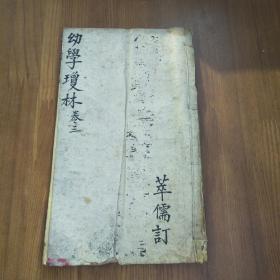 萃儒訂
幼學瓊林 卷三